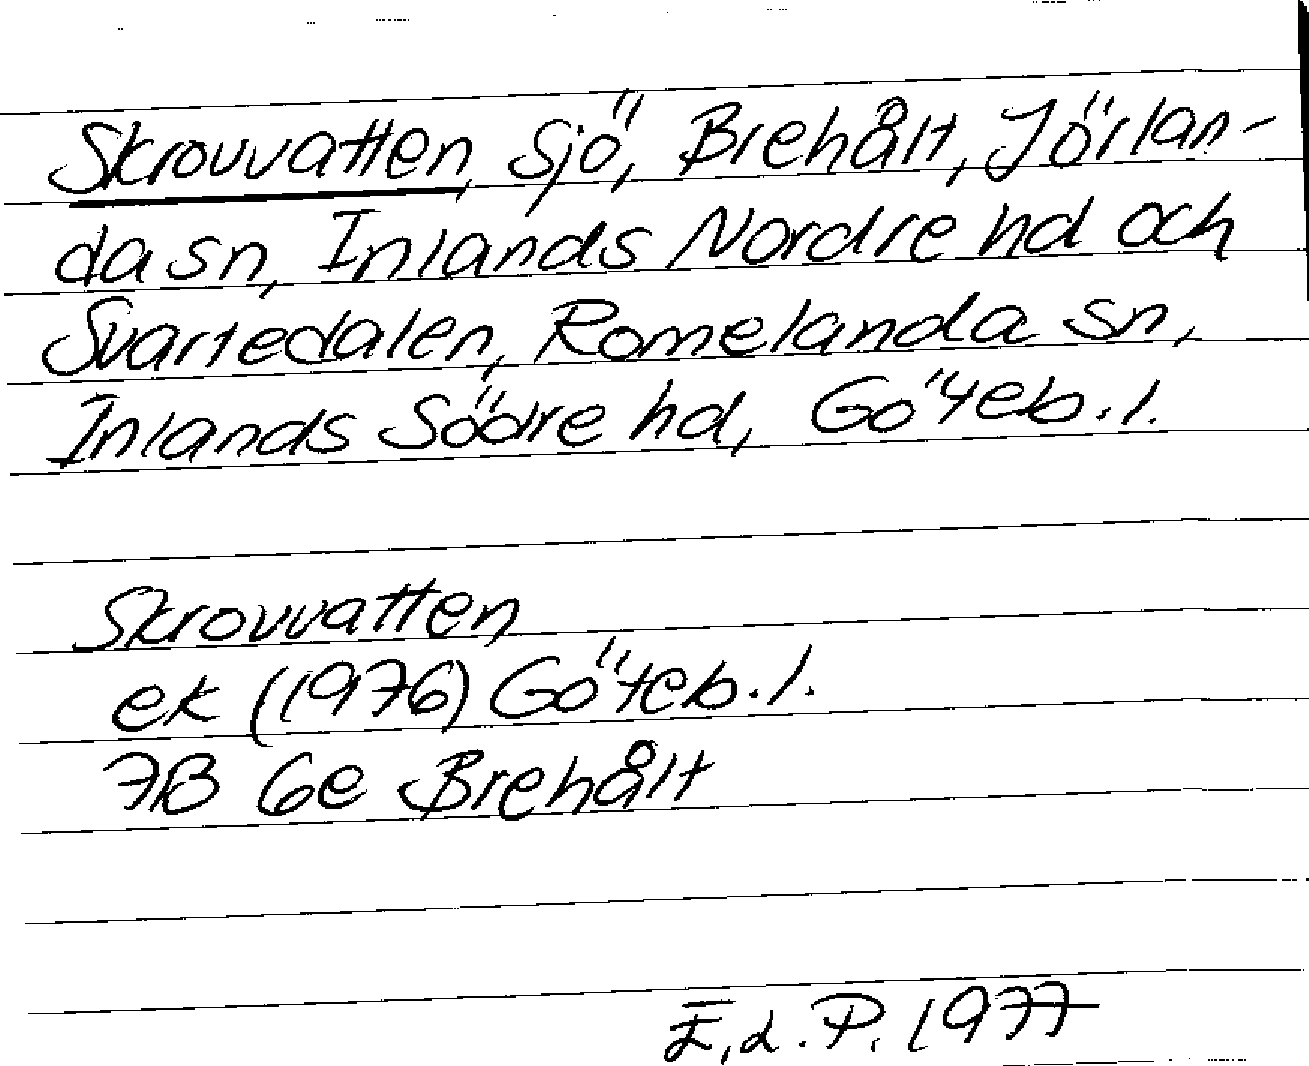 Skrovvatten, sjö, Brehålt, Jörlan-
da sn, Inlands Nordre hd och
Svartedalen, Romelanda sn,
Inlands Södre hd, Göteb. l.
Skrovvatten
ek (1976) Göteb. l.
7B 6e Brehålt
E. d. P. 1977